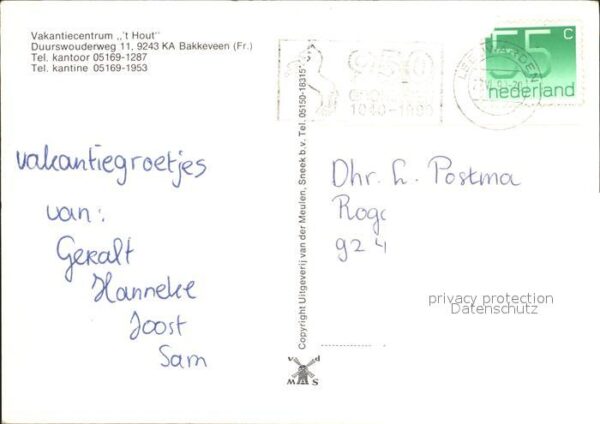 Vakantiecentrum ,,'t Hout"
Duurswouderweg 11, 9243 KA Bakkeveen (Fr.)
Tel. kantoor 05169-1287
Tel. kantine 05169-1953
vakantiegroetjes
van:
Geralt
Hanneke
Joost
Sam
Copyright Uitgeverij van der Meulen, Sneek b.v. Tel. 05150-18315
v d
W M S
950
1040-1990
LEEUWARDEN
55 c
nederland
Dhr. L. Postma
924
privacy protection
Datenschutz